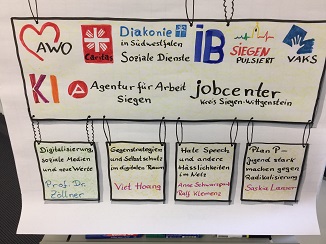 AWO
Caritas
Diakonie
in Südwestfalen
Soziale Dienste
iB
SIEGEN
PULSIERT
VAKS
KI
A Agentur für Arbeit
Siegen
jobcenter
Kreis Siegen-Wittgenstein
Digitalisierung,
soziale Medien
und neue Werte
Prof. Dr.
Zöllner
Gegenstrategien
und Selbstschutz
im digitalen Raum
Viet Hoang
Hate Speech
und andere
Hässlichkeiten
im Netz
Anne
Ralf Klemenz
Plan P-
Jugend stark
machen gegen
Radikalisierung
Saskia